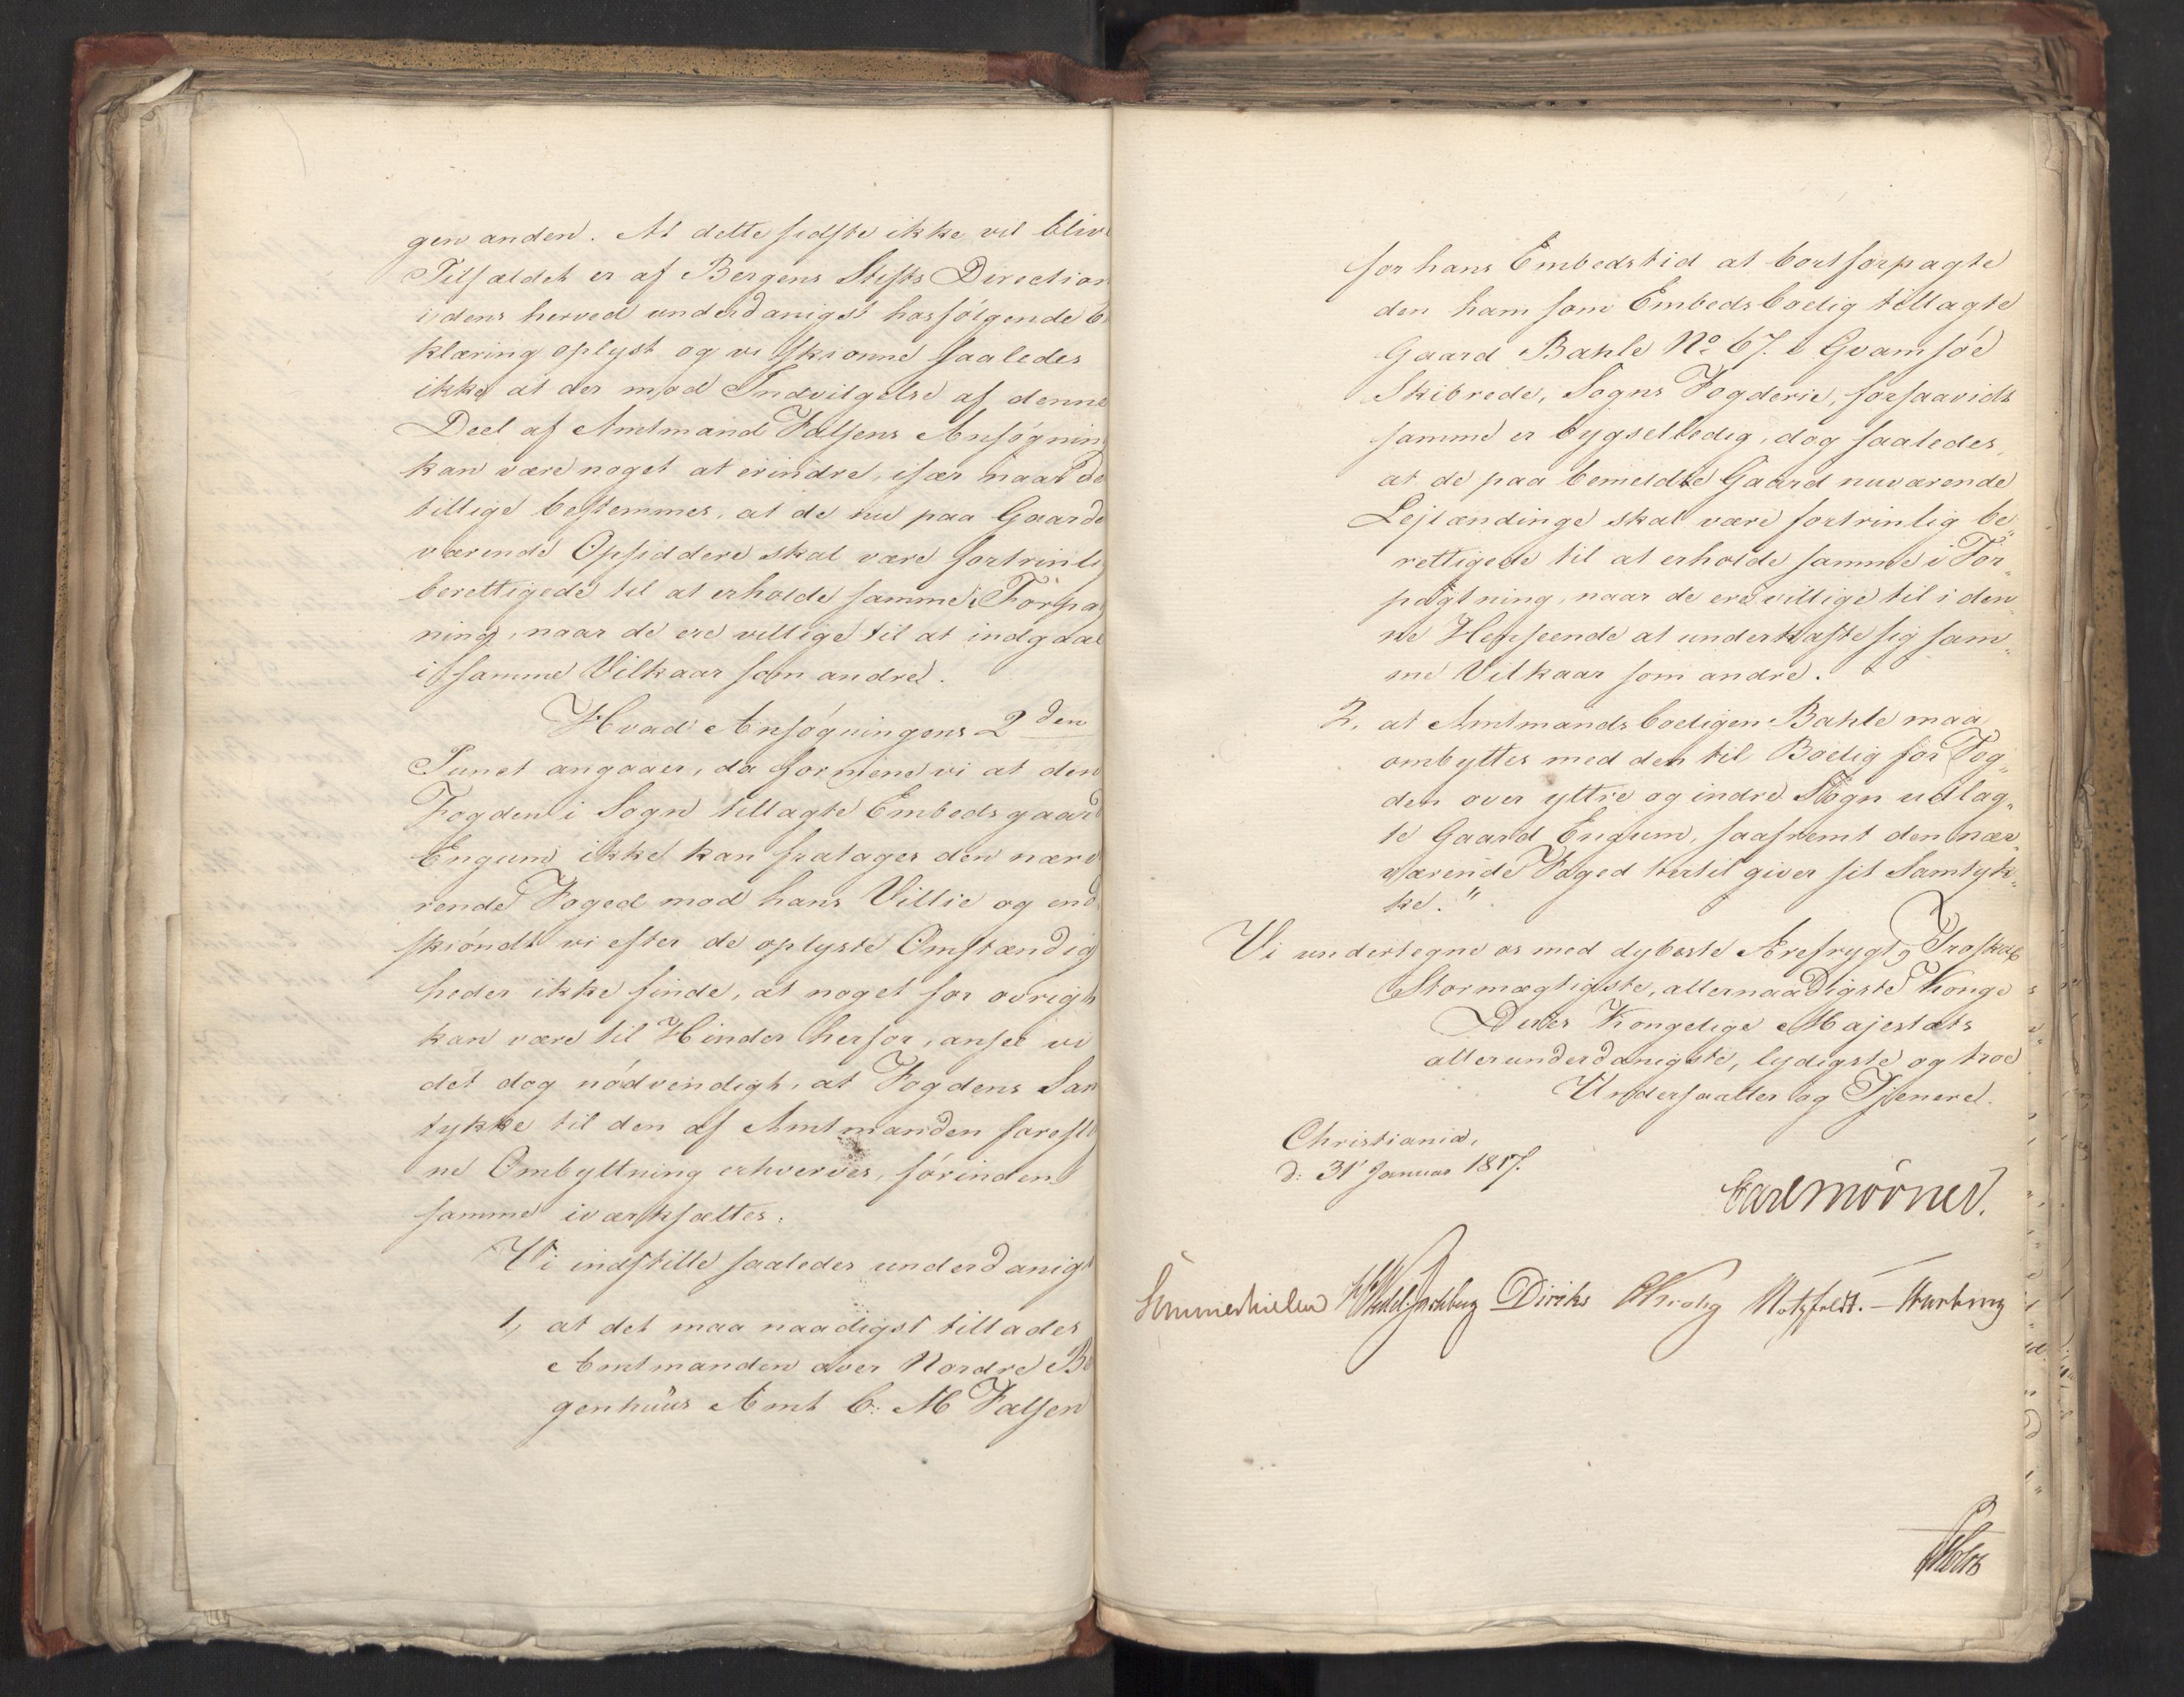 gen anden. At dette sidste ikke vil blive
Tilfældet er af Bergens Stifts Direction
i dens herved underdanigst hosfølgende E
klæring oplyst og vi skionne saaledes
ikke at der mod Indvilgelse af denne
Deel af Amtmand Falsens Ansøgning
kan være noget at erindre, især naar de
tillige bestemmes, at de nu paa Gaarde
værende Opsiddere skal være fortrinli
berettigede til at erholde samme i Forpa
ning, naar de ere villige til at indgaae
i samme Vilkaar som andre.
Hvad Ansøgningens 2den
Punct angaaer, da formene vi at den
Fogden i Sogn tillagte Embedsgaard
Engum ikke kan fratages den nære
rende Foged mod hans Villie og end
skiøndt vi efter de oplyste Omstændig
heder ikke finde, at noget for øvrigt
kan være til Hinder herfor, ansee vi
det dog nødvendigt, at Fogdens Sam
tykke til den af Amtmanden foresl
ne Ombyttning erhverves, førinden
samme iværksættes.
Vi indstille saaledes underdanigst
1, at det maa naadigst tillades
Amtmanden over Nordre Be
genhuus Amt C: M Falsen
for hans Embedstid at bortforpagte
den ham som Embedsboelig tillagte
Gaard Bahle No 67. i Qvamsøe
Skibrede, Sogns Fogderie, forsaavidt
samme er bygselledig, dog saaledes,
at de paa bemeldte Gaard nuværende
Lejlændinge skal være fortrinlig be„
rettigede til at erholde samme i For„
pagtning, naar de ere villige til i den„
ne Henseende at underkaste sig sam„
me Vilkaar som andre.
2. at Amtmandsboeligen Bahle maa
ombyttes med den til Boelig for Fog„
den over yttre og indre Sogn udlag„
te Gaard Engum, saafremt den nær„
værende Foged hertil giver sit Samtyk„
ke."
Vi undertegne os med dybeste Ærefrygt og Troskab
Stormægtigste, allernaadigste Konge
Deres Kongelige Majestæts
allerunderdanigste, lydigste og troe
Undersaatter og Tjenere.
Christiania,
d: 31 Januar 1817.
Carl Mörner.
Sommerhielm HWedel Jarlsberg Diriks CKrohg Motzfeldt. Hwoking